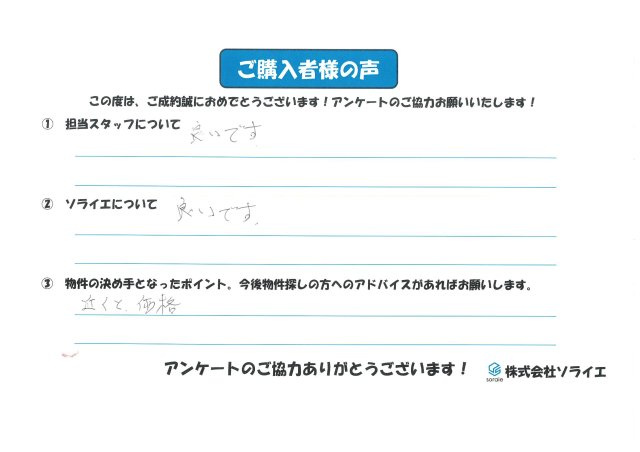 ご購入者様の声
この度は、ご成約誠におめでとうございます！アンケートのご協力お願いいたします！
① 担当スタッフについて 良いです
② ソライエについて 良いです。
③ 物件の決め手となったポイント。今後物件探しの方へのアドバイスがあればお願いします。
近くと、価格
アンケートのご協力ありがとうございます！ soraie 株式会社ソライエ